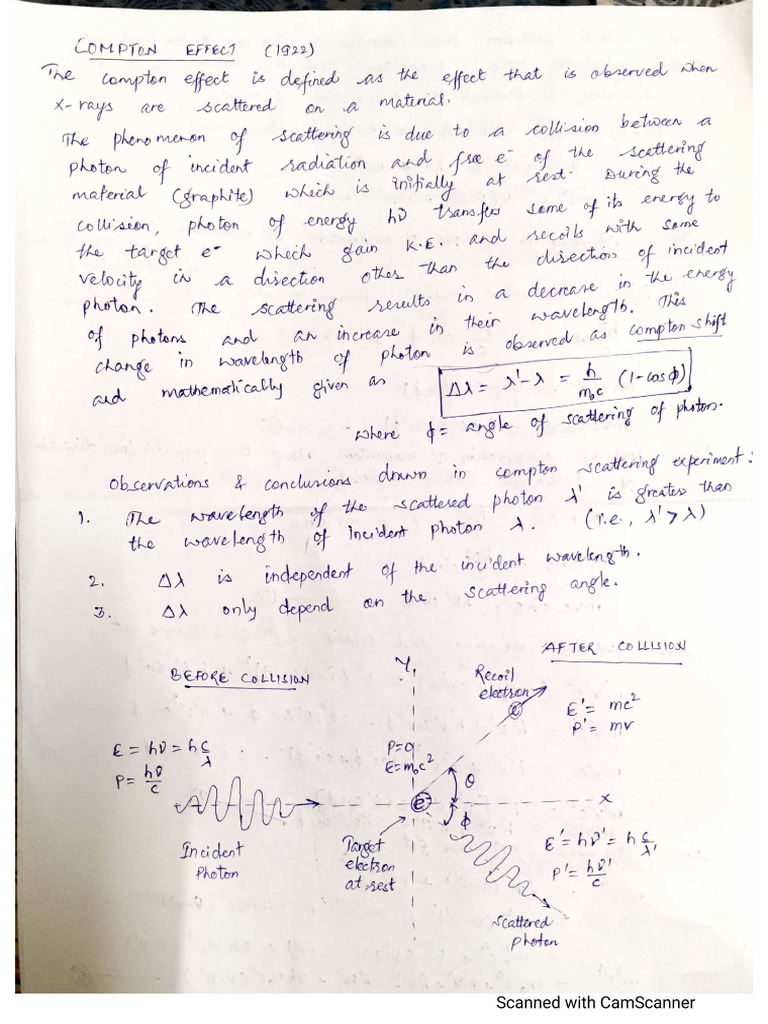 COMPTON EFFECT (1922)
The compton effect is defined as the effect that is observed when
x-rays are scattered on a material.
The phenomenon of scattering is due to a collision between a
photon of incident radiation and free e⁻ of the scattering
material (graphite) which is initially at rest. During the
collision, photon of energy hν transfers some of its energy to
the target e⁻ which gain K.E. and recoils with some
velocity in a direction other than the direction of incident
photon. The scattering results in a decrease in the energy
of photons and an increase in their wavelength. This
change in wavelength of photon is observed as compton shift
and mathematically given as Δλ = λ' - λ = h/m₀c (1-cosϕ)
where ϕ = angle of scattering of photon.
Observations & conclusions drawn in compton scattering experiment:
1. The wavelength of the scattered photon λ' is greater than
the wavelength of incident photon λ. (i.e., λ' > λ)
2. Δλ is independent of the incident wavelength.
3. Δλ only depend on the scattering angle.
BEFORE COLLISION
E = hν = h c/λ
P = hν/c
Incident
Photon
Y
P=0
E=m₀c²
e⁻
Target
electron
at rest
AFTER COLLISION
Recoil
electron
e
E' = mc²
P' = mv
θ
ϕ
X
E' = hν' = h c/λ'
P' = hν'/c
Scattered
photon
Scanned with CamScanner